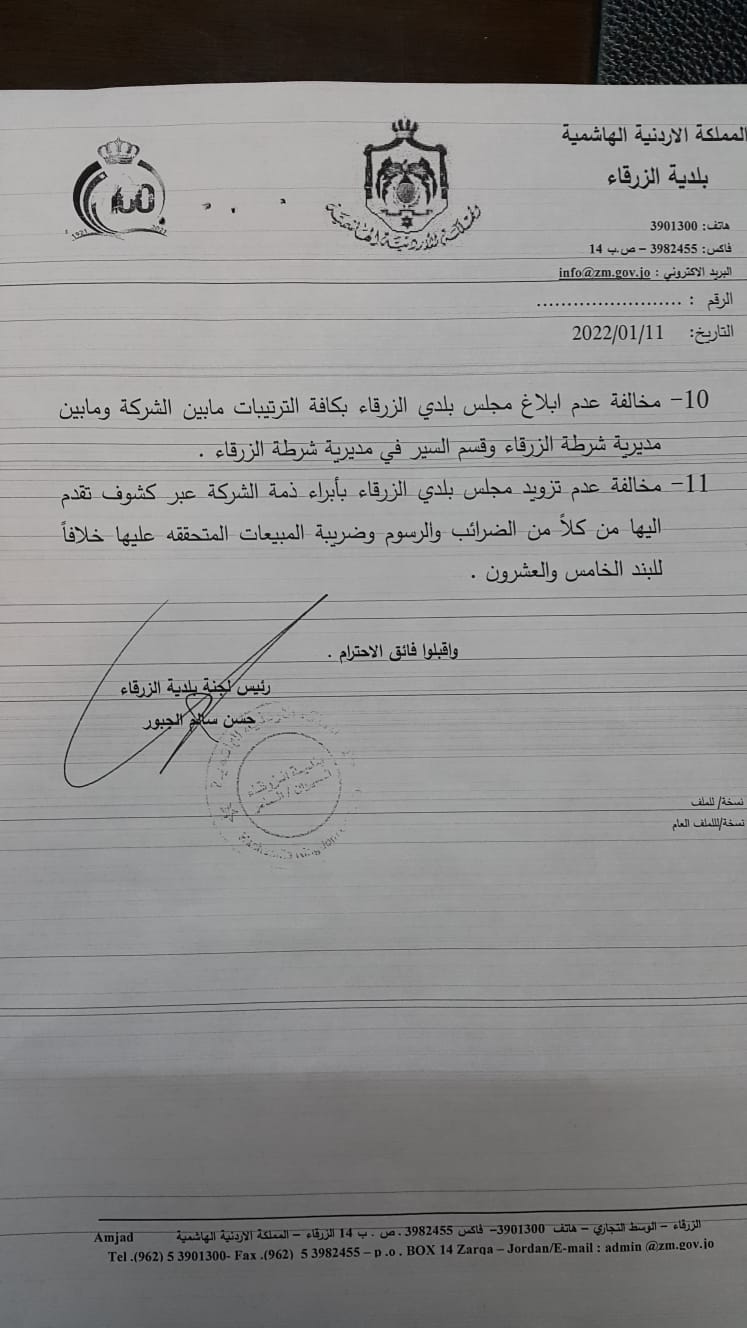 المملكة الاردنية الهاشمية
بلدية الزرقاء
هاتف: 3901300
فاكس: 3982455 – ص.ب 14
البريد الاكتروني : info@zm.gov.jo
الرقم : ........................
التاريخ: 2022/01/11
100
1921
المملكة الأردنية الهاشمية
10- مخالفة عدم ابلاغ مجلس بلدي الزرقاء بكافة الترتيبات مابين الشركة ومابين
مديرية شرطة الزرقاء وقسم السير في مديرية شرطة الزرقاء .
11- مخالفة عدم تزويد مجلس بلدي الزرقاء بأبراء ذمة الشركة عبر كشوف تقدم
اليها من كلاً من الضرائب والرسوم وضريبة المبيعات المتحققه عليها خلافاً
للبند الخامس والعشرون .
واقبلوا فائق الاحترام .
رئيس لجنة بلدية الزرقاء
حسن سالم الجبور
بلدية الزرقاء
نسخة/ للملف
نسخة/للملف العام
الزرقاء – الوسط التجاري – هاتف 3901300– فاكس 3982455 . ص . ب 14 الزرقاء – المملكة الاردنية الهاشمية Amjad
Tel .(962) 5 3901300- Fax .(962) 5 3982455 – p .o . BOX 14 Zarqa – Jordan/E-mail : admin @zm.gov.jo